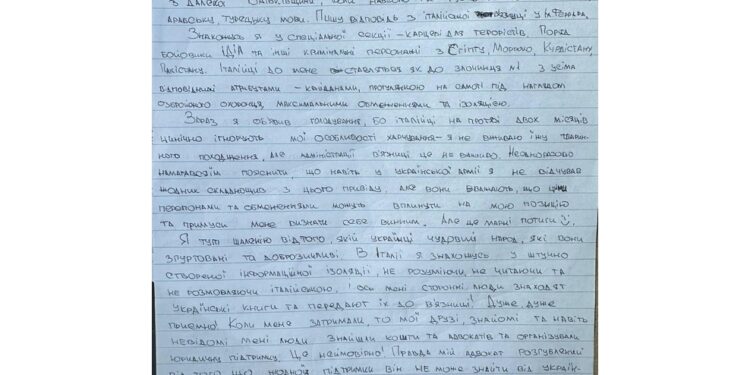 З ДАЛЕКА
АРАБСЬКУ, ТУРЕЦЬКУ МОВИ. ПИШУ ВІДПОВІДЬ З ІТАЛІЙСЬКОЇ У М. ФЕРРАРА.
ЗНАХОЖУСЬ Я У СПЕЦІАЛЬНІЙ СЕКЦІЇ - КАРЦЕРІ ДЛЯ ТЕРОРИСТІВ. ПОРЯД
БОЙОВИКИ ІДІЛ ТА ІНШІ КРИМІНАЛЬНІ ПЕРСОНАЖІ З ЄГИПТУ, МОРОККО, КУРДІСТАНУ,
ПАКІСТАНУ. ІТАЛІЙЦІ ДО МЕНЕ СТАВЛЯТЬСЯ ЯК ДО ЗЛОЧИНЦЯ №1 З УСІМА
ВІДПОВІДНИМИ АТРИБУТАМИ - КАЙДАНАМИ, ПРОГУЛЯНКОЮ НА САМОТІ ПІД НАГЛЯДОМ
ОЗБРОЄНОГО ОХОРОНЦЯ, МАКСИМАЛЬНИМИ ОБМЕЖЕННЯМИ ТА ІЗОЛЯЦІЄЮ.
ЗАРАЗ Я ОБ'ЯВИВ ГОЛОДУВАННЯ, БО ІТАЛІЙЦІ НА ПРОТЯЗІ ДВОХ МІСЯЦІВ
ЦИНІЧНО ІГНОРУЮТЬ МОЇ ОСОБЛИВОСТІ ХАРЧУВАННЯ - Я НЕ ВЖИВАЮ ЇЖУ ТВАРИН-
НОГО ПОХОДЖЕННЯ, АЛЕ АДМІНІСТРАЦІЇ В'ЯЗНИЦІ ЦЕ НЕ ВАЖЛИВО. НЕОДНОРАЗОВО
НАМАГАВСЯ ЇМ ПОЯСНИТИ ЩО НАВІТЬ У УКРАЇНСЬКОЇ АРМІЇ Я НЕ ВІДЧУВАВ
ЖОДНИХ СКЛАДНОЩІВ З ЦЬОГО ПРИВІДУ, АЛЕ ВОНИ ВВАЖАЮТЬ, ЩО ЦІМИ
ПЕРЕПОНАМИ ТА ОБМЕЖЕННЯМИ МОЖУТЬ ВПЛИНУТИ НА МОЮ ПОЗИЦІЮ
ТА ПРИМУСИ МЕНЕ ВИЗНАТИ СЕБЕ ВИННИМ. АЛЕ ЦЕ МАРНІ ПОТУГИ
Я ТУТ ШАЛЕНІЮ ВІД ТОГО, ЯКІЙ УКРАЇНЦІ ЧУДОВИЙ НАРОД, ЯКІ ВОНИ
ЗГУРТОВАНІ ТА ДОБРОЗИЧЛИВІ. В ІТАЛІЇ Я ЗНАХОЖУСЬ У ШТУЧНО
СТВОРЕНОЇ ІНФОРМАЦІЙНОЇ ІЗОЛЯЦІЇ, НЕ РОЗУМІЮЧИ, НЕ ЧИТАЮЧИ ТА
НЕ РОЗМОВЛЯЮЧИ ІТАЛІЙСЬКОЮ. І ОСЬ МЕНІ СТОРОННІ ЛЮДИ ЗНАХОДЯТ
УКРАЇНСЬКІ КНИГИ ТА ПЕРЕДАЮТ ЇХ ДО В'ЯЗНИЦІ! ДУЖЕ, ДУЖЕ
ПРИЄМНО! КОЛИ МЕНЕ ЗАТРИМАЛИ, ТО МОЇ ДРУЗІ, ЗНАЙОМІ ТА НАВІТЬ
НЕВІДОМІ МЕНІ ЛЮДИ ЗНАЙШЛИ КОШТИ ТА АДВОКАТІВ ТА ОРГАНІЗУВАЛИ
ЮРИДИЧНУ ПІДТРИМКУ. ЦЕ НЕЙМОВІРНО! ПРАВДА МІЙ АДВОКАТ РОЗГУБЛЕНИЙ
ВІД ТОГО ЩО ЖОДНОЇ ПІДТРИМКИ ВІН НЕ МОЖЕ ЗНАЙТИ ВІД УКРАЇН-